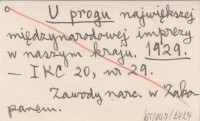 U progu największej
międzynarodowej imprezy
w naszym kraju. 1929.
— IKC 20, nr 29.
Zawody narc. w Zako-
panem.